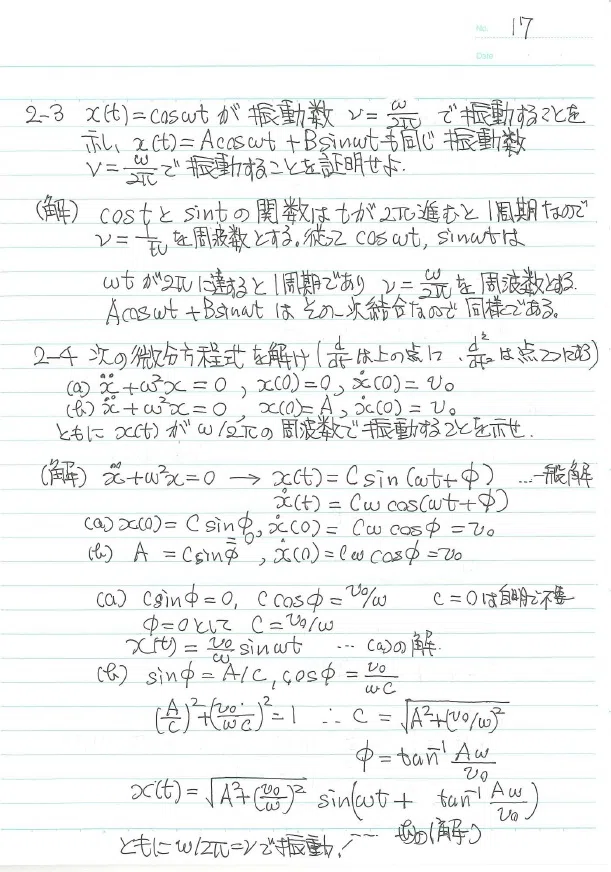 No. 17
Date
2-3 x(t)=cosωt が振動数 ν=ω/2π で振動することを
示し、x(t)=Acosωt+Bsinωtも同じ振動数
ν=ω/2πで振動することを証明せよ.
(解) costとsintの関数はtが2π進むと1周期なので
ν=1/2πを周波数とする。従って cosωt, sinωtは
ωtが2πに達すると1周期であり ν=ω/2πを周波数とする.
Acosωt+Bsinωtはその一次結合なので同様である。
2-4 次の微分方程式を解け(d/dtは上の点に、d²/dt²は点2つにする)
(a) ẍ+ω²x=0, x(0)=0, ẋ(0)=v₀
(b) ẍ+ω²x=0, x(0)=A, ẋ(0)=v₀
ともにx(t)がω/2πの周波数で振動することを示せ.
(解) ẍ+ω²x=0 → x(t)=Csin(ωt+φ) …一般解
ẋ(t)=Cωcos(ωt+φ)
(a) x(0)=Csinφ=0, ẋ(0)=Cωcosφ=v₀
(b) A=Csinφ, ẋ(0)=Cωcosφ=v₀
(a) Csinφ=0, Ccosφ=v₀/ω C=0は自明で不要
φ=0として C=v₀/ω
x(t)=v₀/ω sinωt … (a)の解.
(b) sinφ=A/C, cosφ=v₀/ωC
(A/C)²+(v₀/ωC)²=1 ∴ C=√(A²+(v₀/ω)²)
φ=tan⁻¹ Aω/v₀
x(t)=√(A²+(v₀/ω)²) sin(ωt+tan⁻¹ Aω/v₀)
… (解)
ともにω/2π=νで振動!